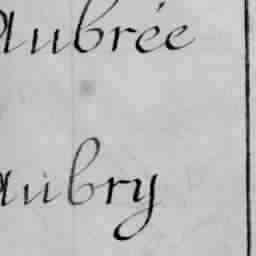 Aubrée
Aubry